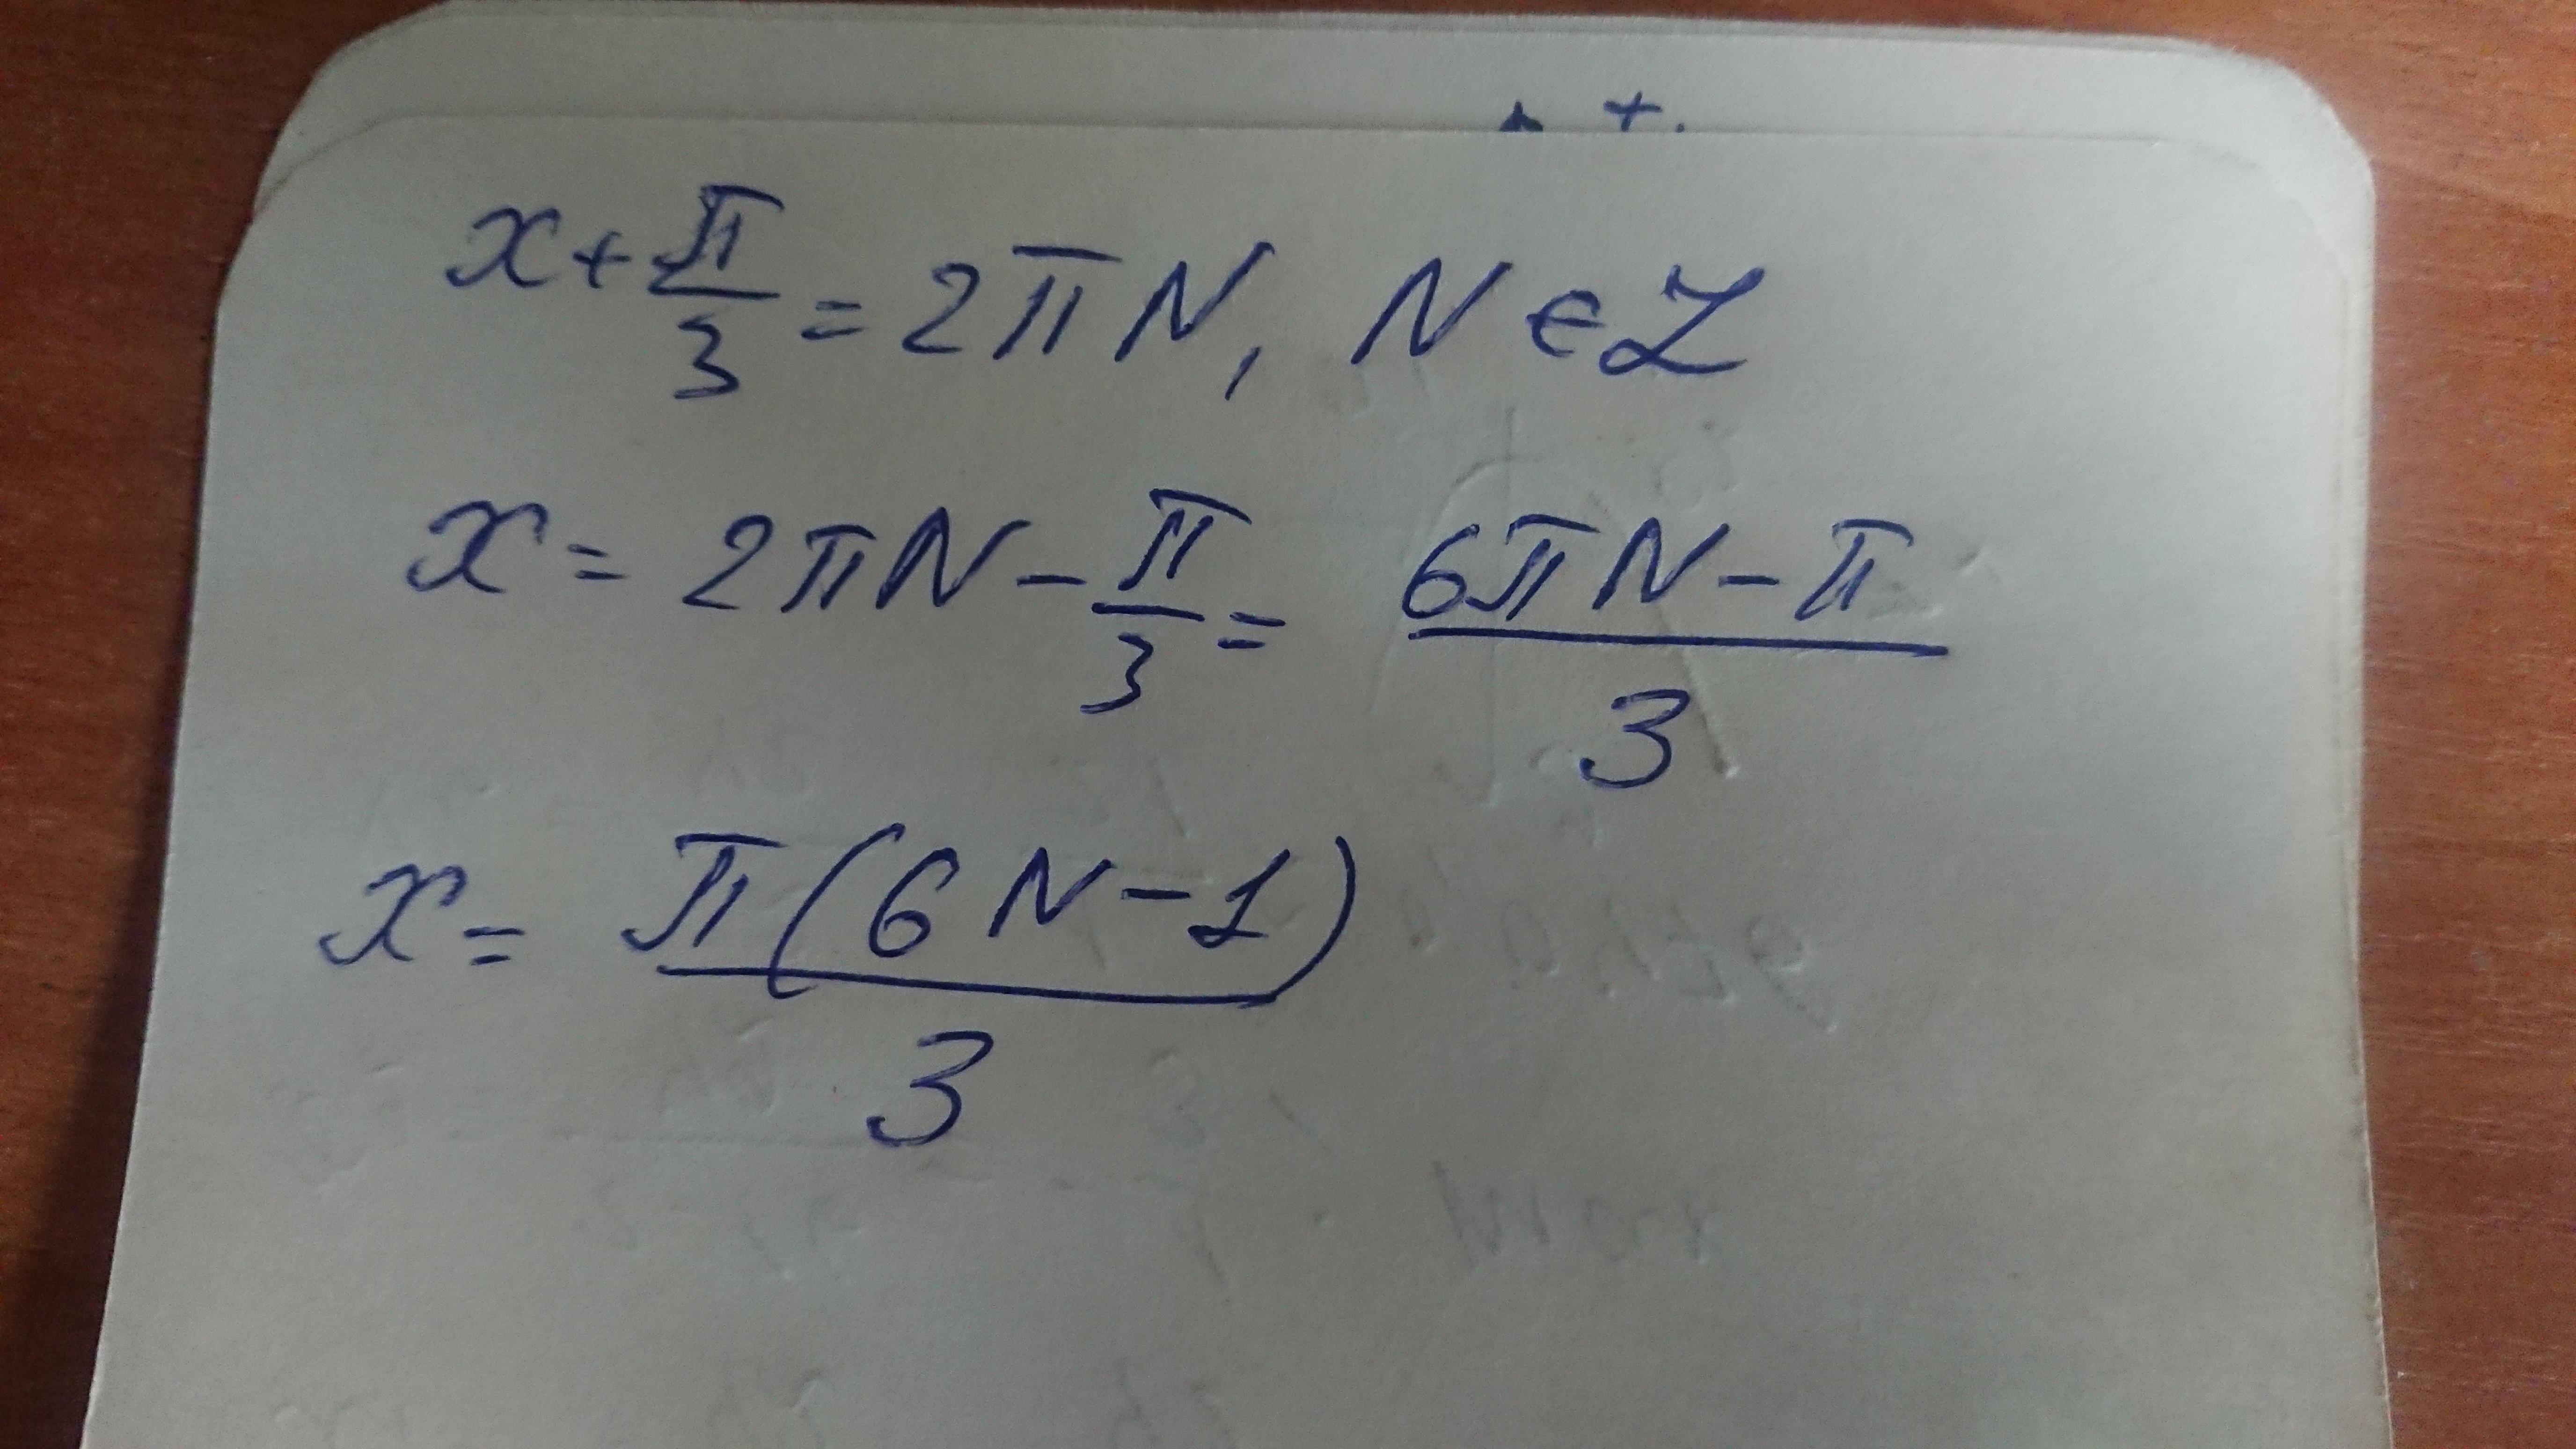 x + π/3 = 2πN, N ∈ Z
x = 2πN - π/3 = (6πN - π)/3
x = π(6N - 1)/3